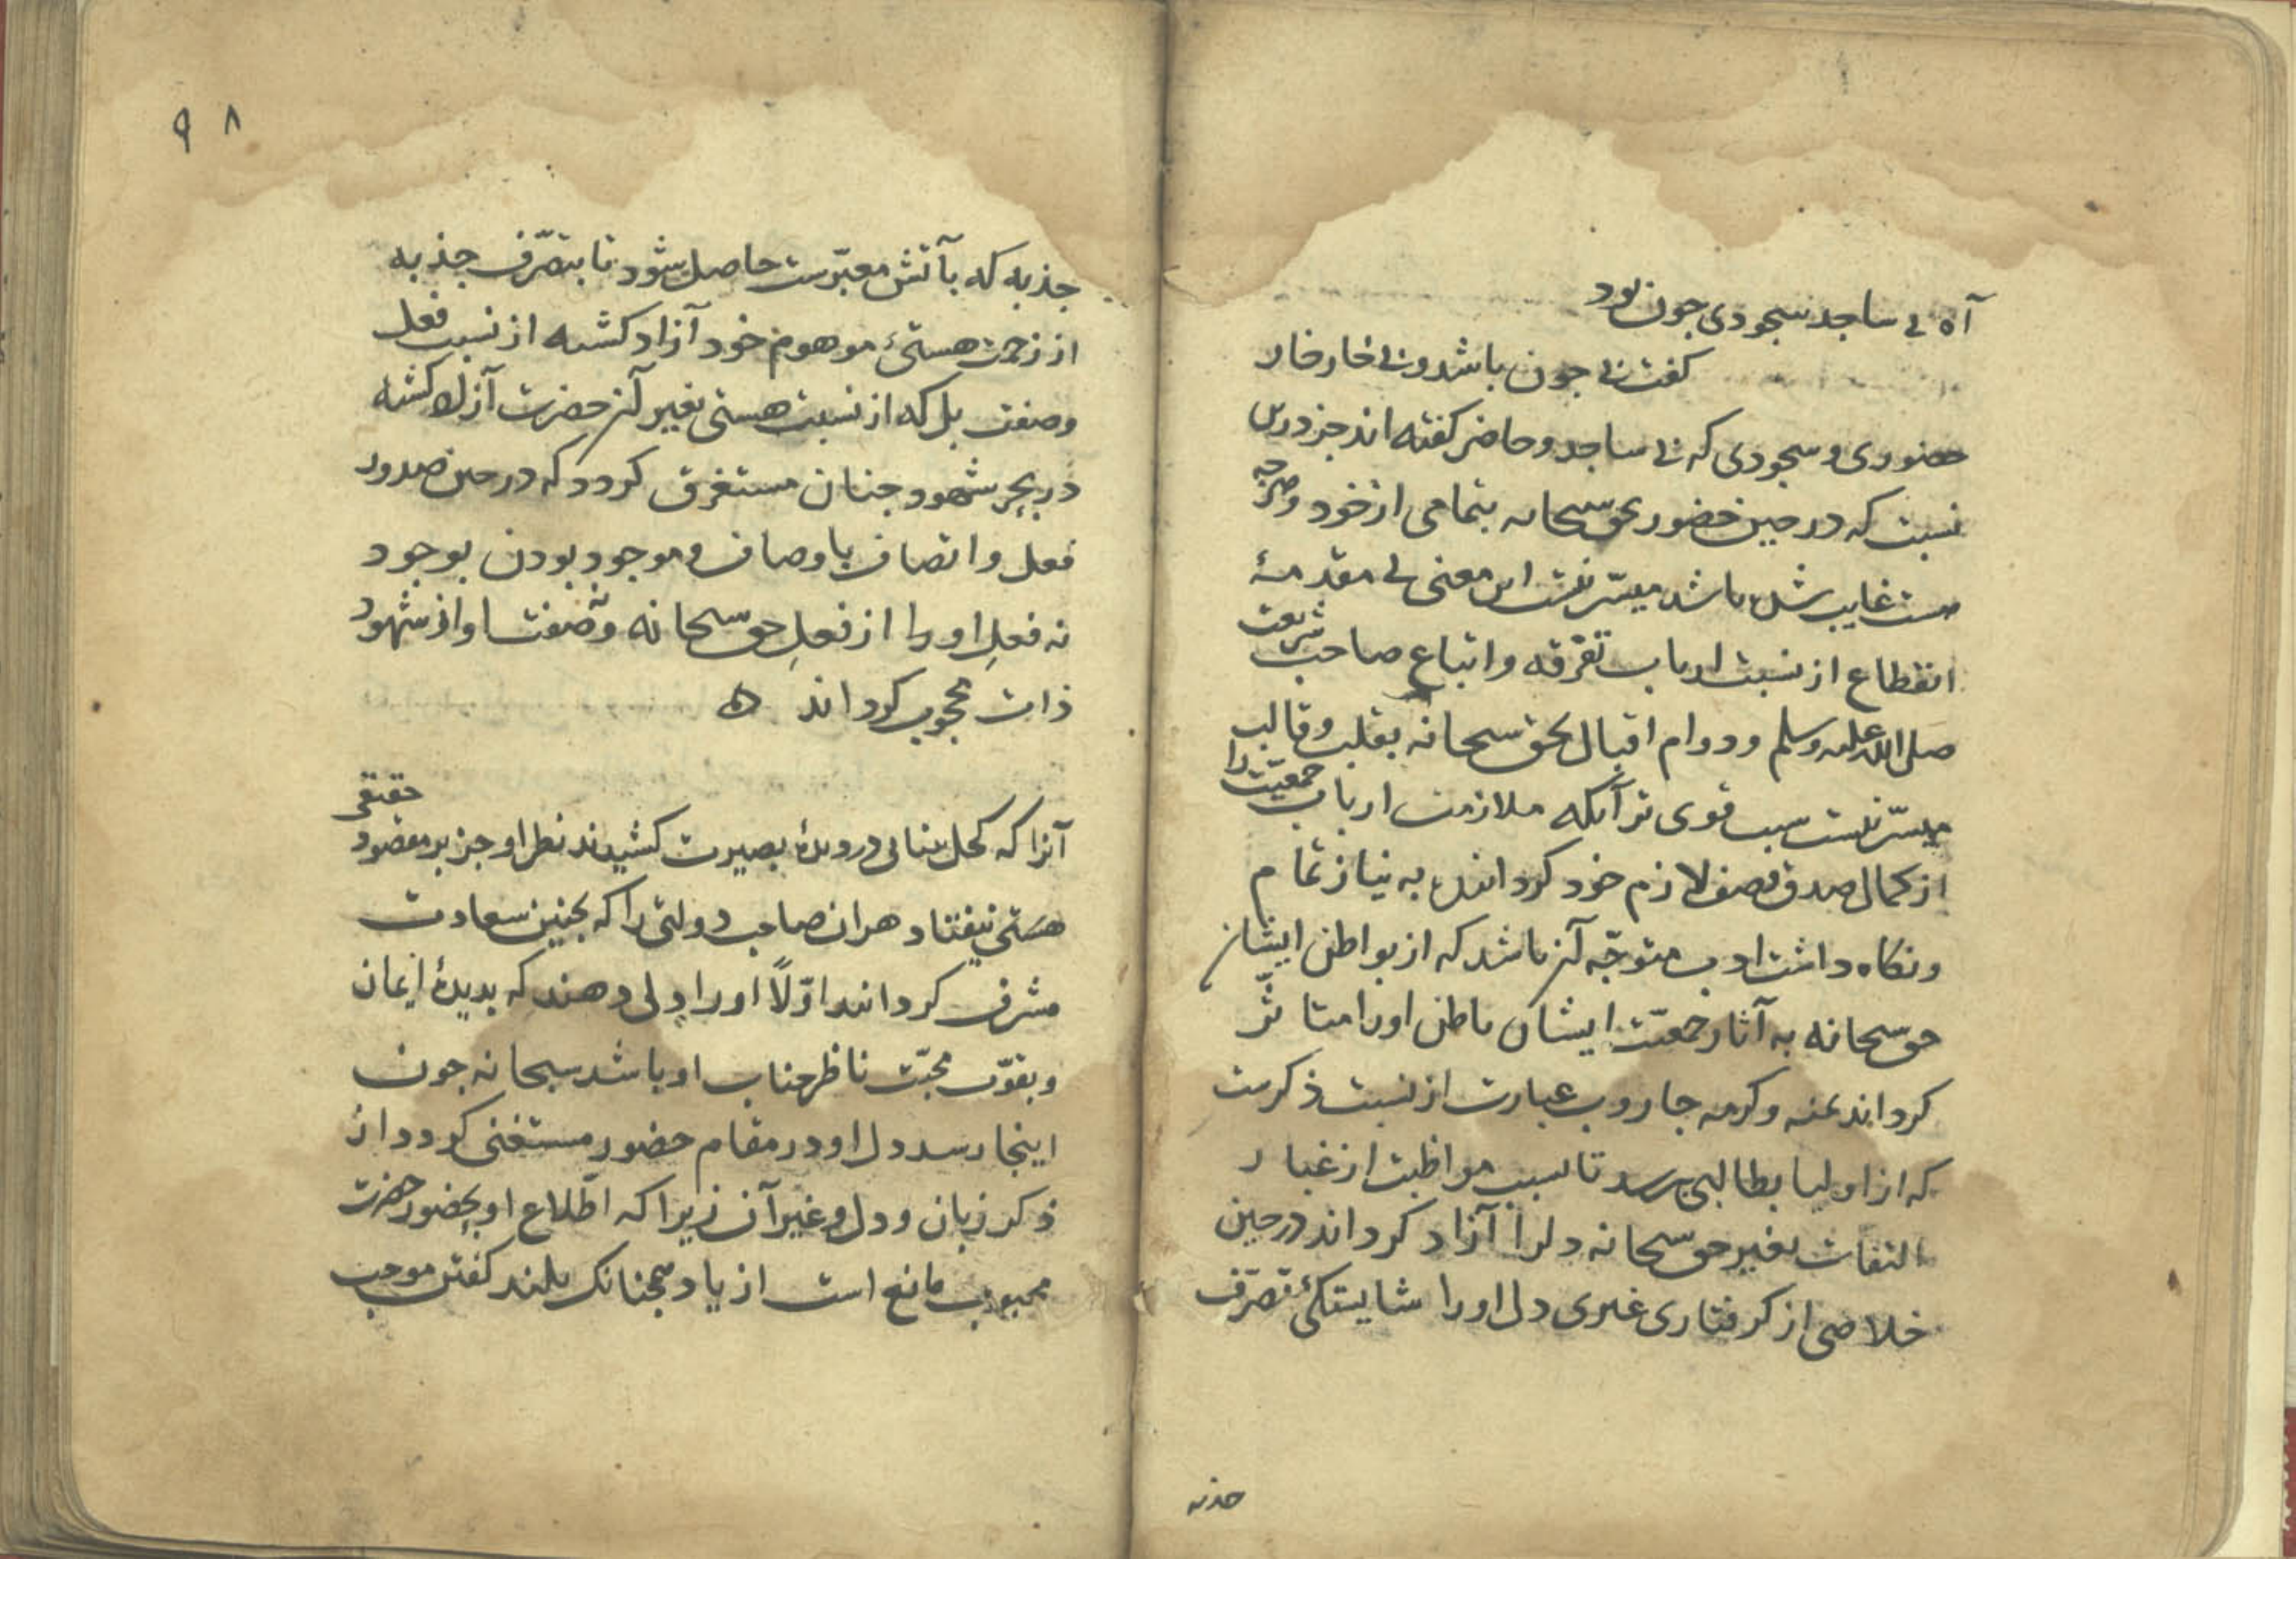 آه بی ساجد سجودی جون بود
کفت بی جون باشد و بی خار خار
حضوری و سجودی که بی ساجد و حاضر کفته اند جز درین
نسبت که در حین حضور بحق سبحانه بتمامی از خود و هرجه
هست غایب شده باشد میسّر نیست این معنی بی مقدمهٔ
انقطاع از نسبت ارباب تفرقه و اتباع صاحب شریعت
صلی الله علیه وسلم و دوام اقبال بحق سبحانه بقلب و قالب
میسّر نیست سبب قوی تر آنکه ملازمت ارباب جمعیّت را
از کمال صدق وصف لازم خود کرداننده به نیاز تمام
و نکاه داشت ادب متوجّه آن باشد که از بواطن ایشان
حق سبحانه به آثار جمعیّت ایشان باطن او را متاثّر
کرداند بمنه و کرمه جاروب عبارت از نسبت ذکرست
که از اولیا بطالبی برسد تا بسبب مواظبت از غبار
التفات بغیر حق سبحانه دلرا آزاد کرداند در حین
خلاصی از کرفتاری غیری دل او را شایستکیٔ تصرّف
جذبه
۹۸
جذبه که بآتش معبّرست حاصل شود تا بتصرّف جذبه
از زحمت هستیٔ موهوم خود آزاد کشته از نسبت فعل
وصفت بل که از نسبت هستی بغیر آن حضرت آزاد کشته
در بحر شهود جنان مستغرق کردد که در حین صدور
فعل و اتصاف باوصاف و موجود بودن بوجود
نه فعلِ او را از فعلِ حق سبحانه و نه صفت او از شهود
ذات محجوب کرداند ه
آنرا که کحل بینائی در دیدهٔ بصیرت کشیدند نظر او جز بر مقصود حقیقی
هستی نیفتاد هر ان صاحب دولتی را که بجنین سعادت
مشرف کردانند اوّلاً او را دلی دهند که بدیدهٔ ایمان
و بقوّت محبّت ناظر جناب او باشد سبحانه جون
اینجا رسد دل او در مقام حضور مستغنی کردد از
ذکر زبان و دل و غیر آن زیرا که اطّلاع او بحضور حضرت
محبوب مانع است از یاد همجنانک بلند کفتن موجب